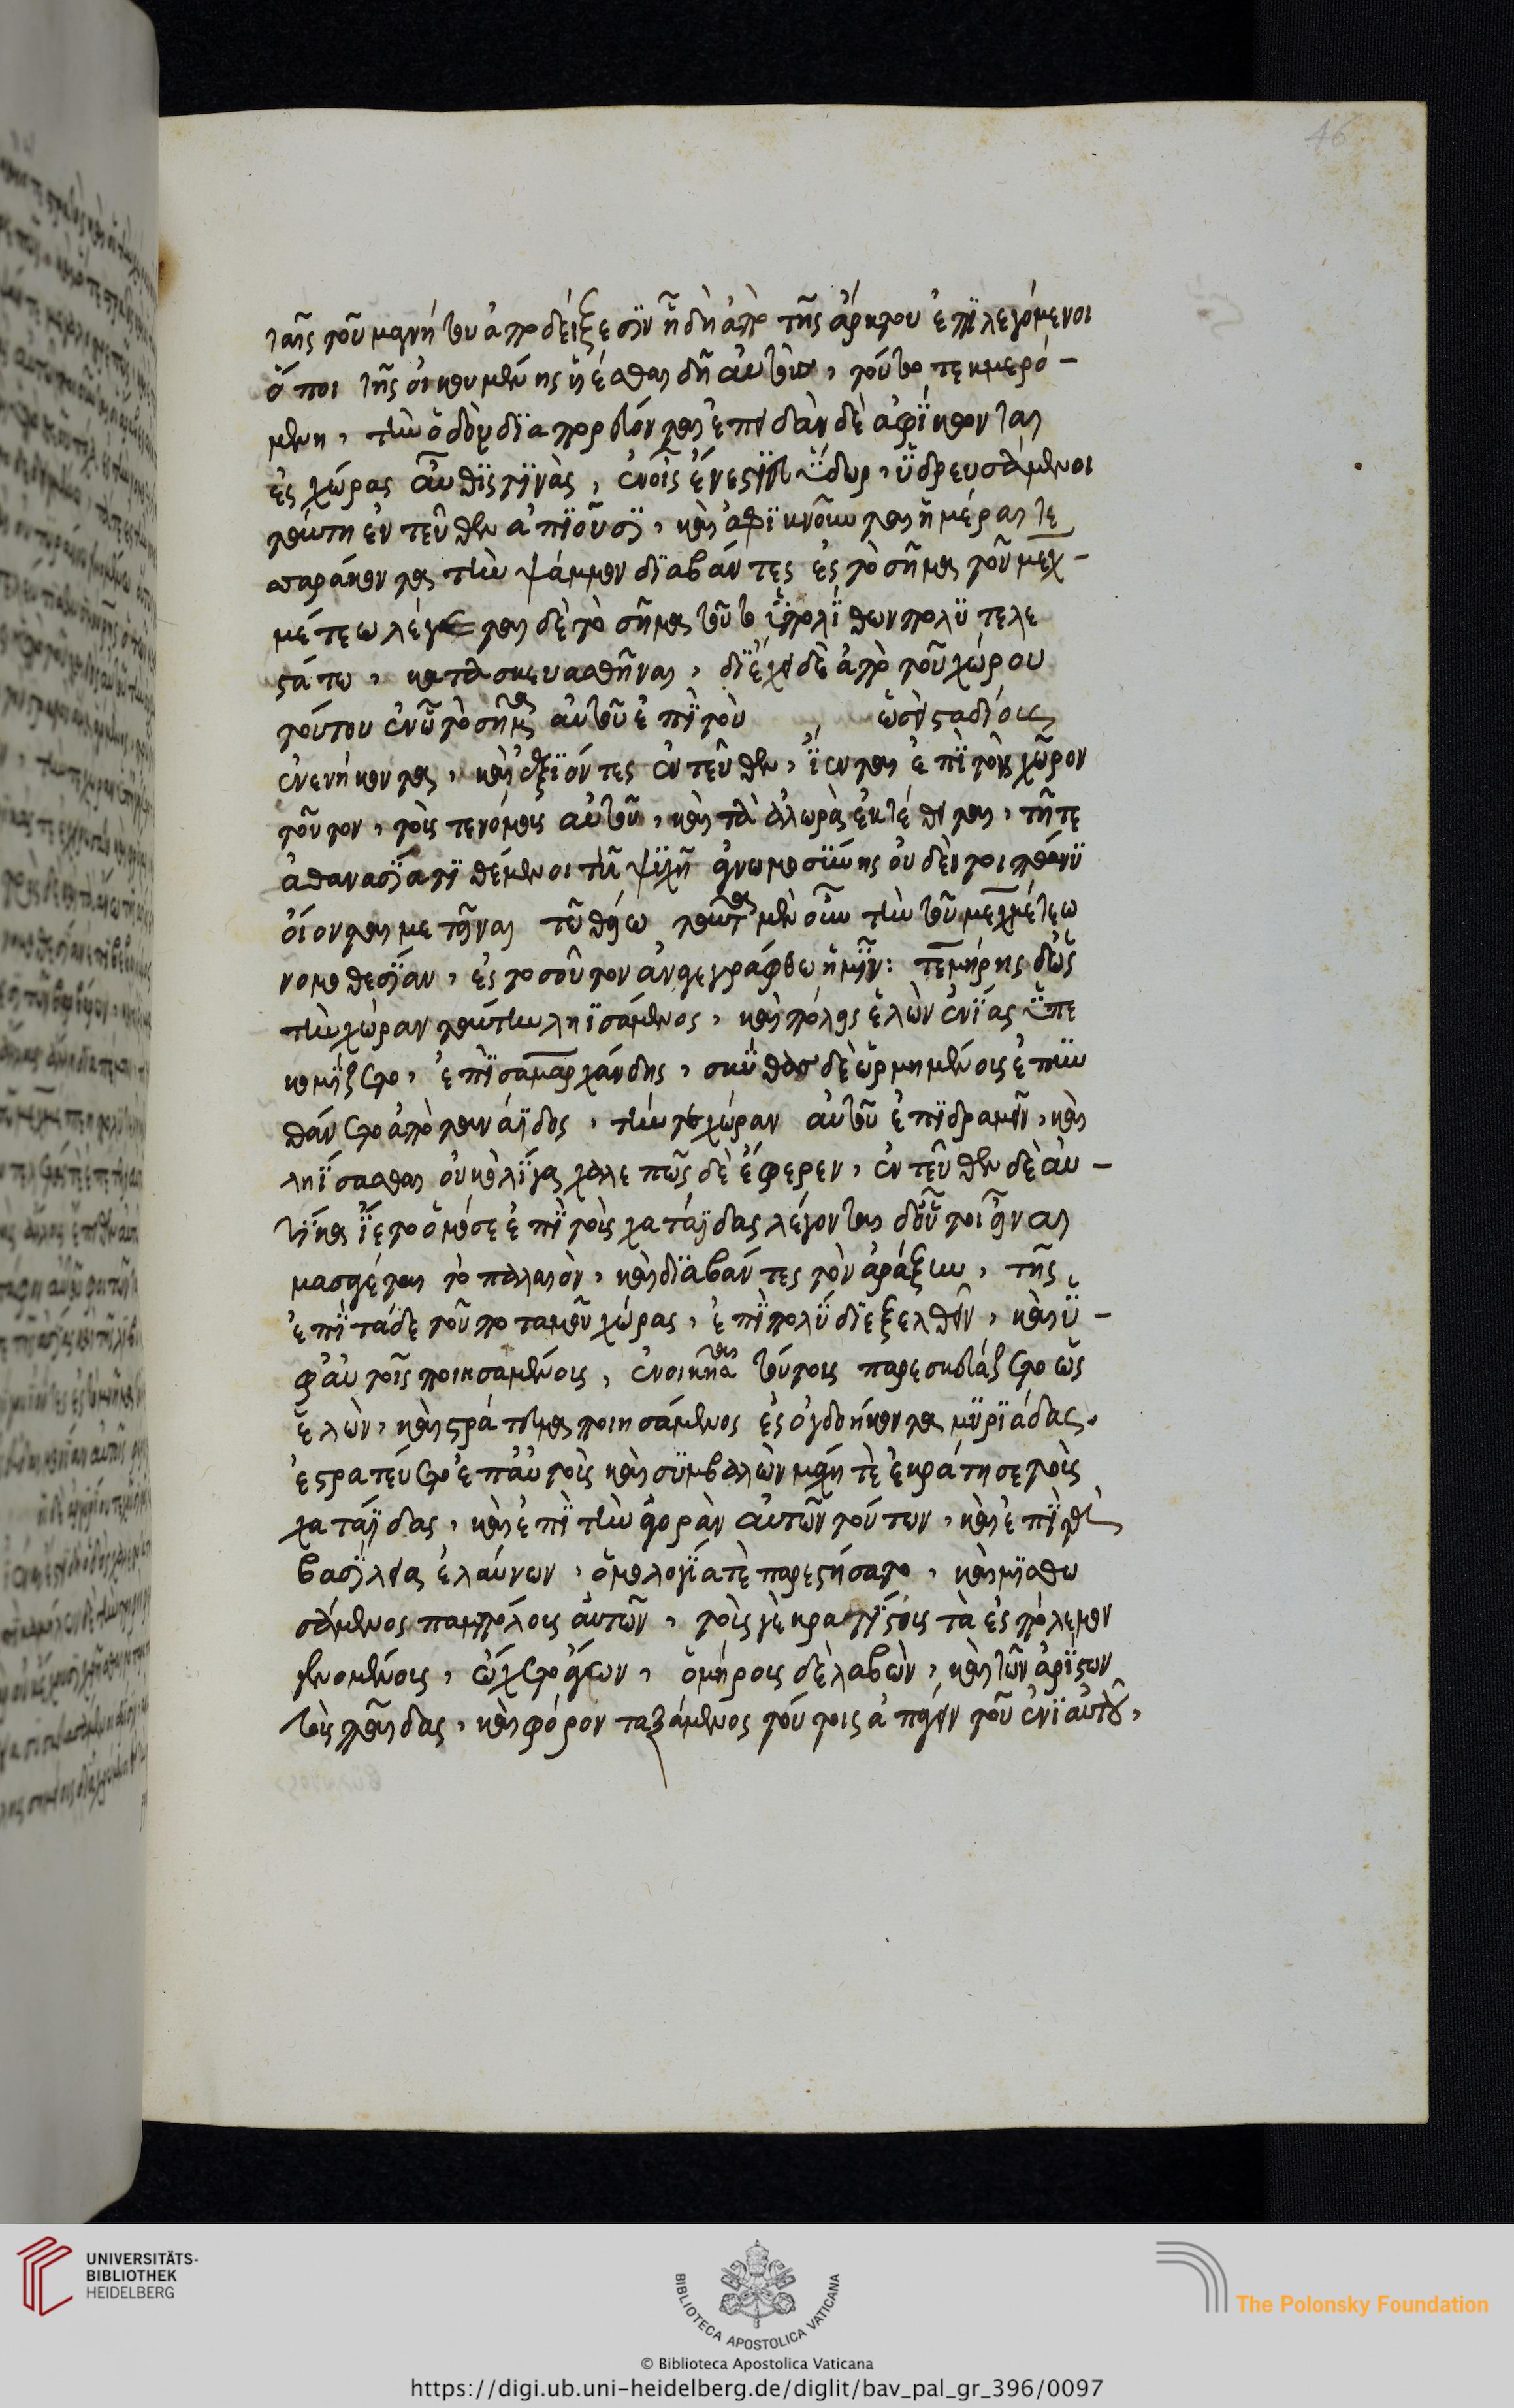 ταῖς τοῦ μαγνήτου ἀποδείξεσϊν ἤδη ἀπὸ τῆς ἄρκτου ἐπϊλεγόμενοι
ὅποι τῆς οἰκουμένης ἰέσθαι δεῖ αὐτοὺς, τούτω τεκμερό-
μενοι, τὴν ὁδὸν δϊαπορεύονται ἐπειδὰν δὲ ἀφΐκονται
ἐς χώρας αὖθϊς τϊνὰς, ἐν οἷς ἔνεστϊν ὕδωρ, ὑδρευσάμενοι
ταύτη ἐντεῦθεν ἀπϊοῦσϊ, καὶ ἀφϊκνοῦνται ἡμέραις ιε
παράκοντα τὴν ψάμμον δϊαβάντες ἐς τὸ σῆμα τοῦ μεχ-
μέτεω λέγεται δὲ τὸ σῆμα τοῦτο ὑπὸ λΐθων πολϋτελε
στάτω, κατασκευασθῆναι, δϊέχει δὲ ἀπὸ τοῦ χώρου
τούτου ἐν ὧ τὸ σῆμα αὐτοῦ ἐπϊ τὸν ὡσεὶ σταδίους
ἐνενήκοντα, καὶ ἐξϊόντες ἐντεῦθεν, ΐενται ἐπϊ τὸν χῶρον
τοῦτον, τοῖς τε νόμοις αὐτοῦ, καὶ τὰ ἀλωρὰ ἐκτέθειται, τῆ τε
ἀθανασΐα τϊθέμενοι τῆ ψϋχῆ γνωμοσϋνης οὐδέν τοι πάνϋ
οἴονται μετεῖναι τῶ θείω ταῦτα μὲν οὖν τὴν τοῦ μεχμέτεω
νομοθεσΐαν, ἐς τοσοῦτον ἀναγεγράφθω ἡμῖν: τεμήρης δ' ὡς
τὴν χώραν ταύτην ληϊσάμενος, καὶ πόλεις ἑλὼν ἐνΐας ὑπε
κομΐζετο, ἐπϊ σαμαρχάνδης, σκΰθας δὲ ὡρμημένους ἐπϋν
θάνετο ἀπὸ ταναΐδος, τήν τε χώραν αὐτοῦ ἐπϊδραμεῖν, καὶ
ληΐσασθαι οὐκ ὀλΐγα χαλεπῶς δὲ ἔφερεν, ἐντεῦθεν δὲ αὐ-
τΐκα ΐετο ὁμόσε ἐπϊ τοὺς χατάϊδας λέγονται δ' οὗτοι εἶναι
μασαγέται τὸ παλαιὸν, καὶ δϊαβάντες τὸν ἀράξην, τῆς
ἐπϊ τάδε τοῦ ποταμοῦ χώρας, ἐπϊ πολὺ δϊεξελθεῖν, καὶ ὑ-
φ' αὑτοῖς ποιησαμένους, ἐνοικῆσαι τούτοις παρεσκευάζετο ὡς
ἑλὼν, καὶ στράτευμα ποιησάμενος ἐς ὀγδοήκοντα μϋρϊάδας.
ἐστρατεύετο ἐπ' αὐτοὺς καὶ σϋμβαλὼν μάχη τὲ ἐκράτησε τοὺς
χατάϊδας, καὶ ἐπϊ τὴν ἀγορὰν αὐτῶν τούτων, καὶ ἐπϊ τὰ
βασΐλεια ἐλαύνων, ὁμολογΐα τὲ παρεστήσατο, καὶ μϊσθω
σάμενος παμπόλους αὐτῶν, τοὺς γὲ κρατΐστους τὰ ἐς πόλεμον
γενομένους, ὤχετο ἄγων, ὁμήρους δὲ λαβὼν, καὶ τῶν ἀρΐστων
τοὺς παῖδας, καὶ φόρον ταξάμενος τούτοις ἀπάγειν τοῦ ἐνϊαυτοῦ,
46
UNIVERSITÄTS-
BIBLIOTHEK
HEIDELBERG
BIBLIOTECA APOSTOLICA VATICANA
The Polonsky Foundation
© Biblioteca Apostolica Vaticana
https://digi.ub.uni-heidelberg.de/diglit/bav_pal_gr_396/0097